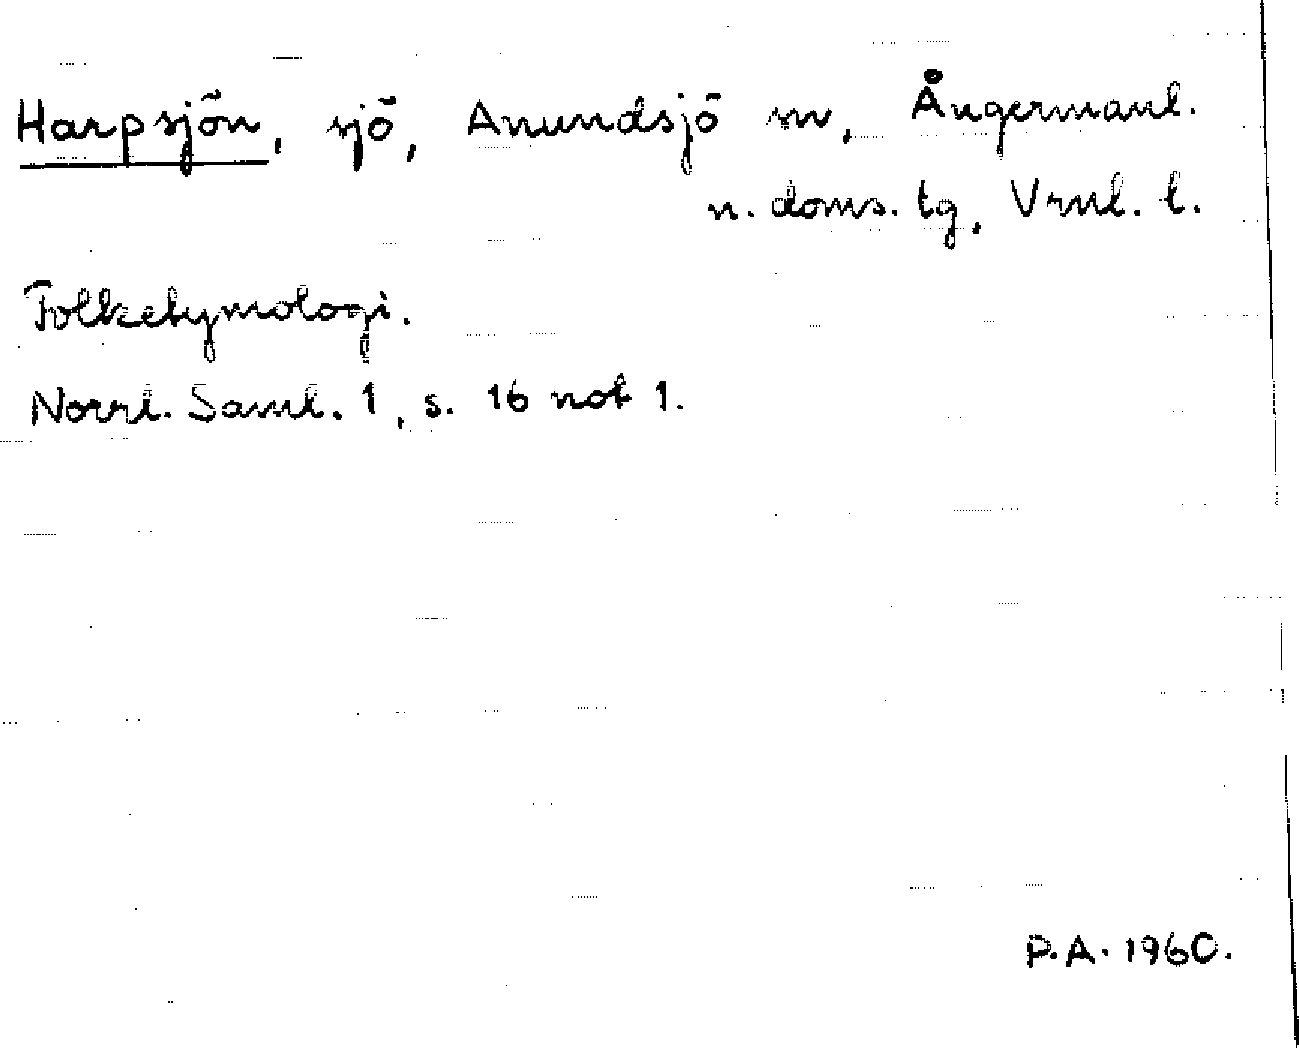 Harpsjön, sjö, Anundsjö sn, Ångermanl.
n. doms. tg, Vrnl. l.
Folketymologi.
Norrl. Saml. 1, s. 16 not 1.
P.A. 1960.